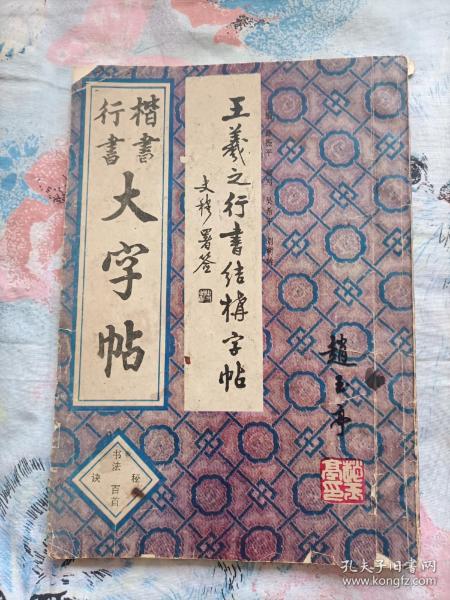 楷書
行書
大字帖
王羲之行書结構字帖
文穆署签
书法
秘诀
百首
孔夫子旧书网
www.kongfz.com